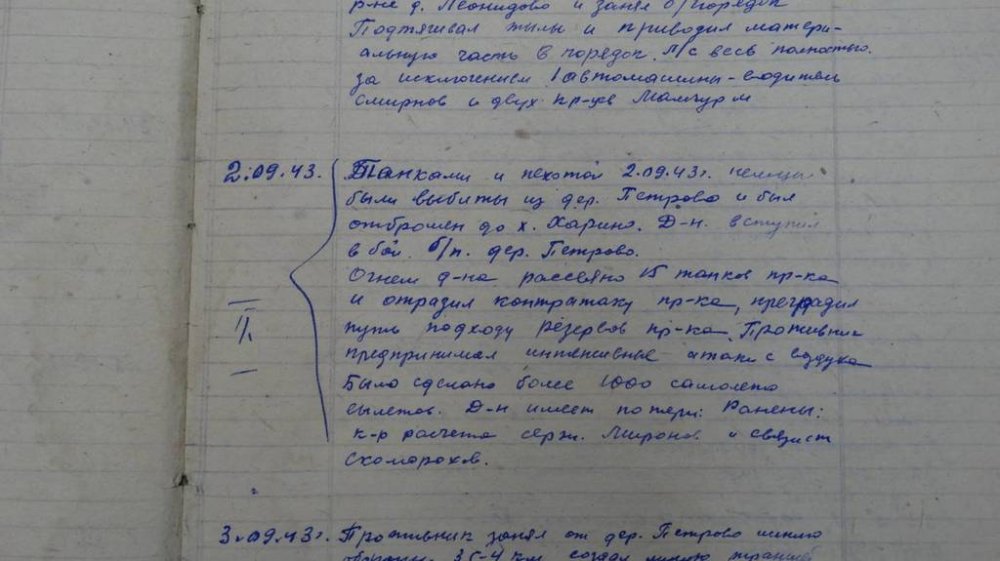 р-не д. Леонидово и занял б/порядок
Подтягивал тылы и приводил матери-
альную часть в порядок. Л/с весь полностью.
за исключением 1 автомашины - водитель
Смирнов и двух кр-цев Мамчур и
2.09.43. Танками и пехотой 2.09.43г. немцы
были выбиты из дер. Петрово и был
отброшен до х. Харино. Д-н. вступил
в бой б/п. дер. Петрово.
Огнем д-на рассеяно 15 танков пр-ка
и отразил контратаку пр-ка, преградил
II. путь подходу резервов пр-ка. Противник
предпринимал интенсивные атаки с воздуха
Было сделано более 1000 самолето
вылетов. Д-н имеет потери: Ранены:
к-р расчета серж. Миронов и связист
Скоморохов.
3.09.43г. Противник занял от дер. Петрово линию
обороны 3,5-4 км создал линию траншей